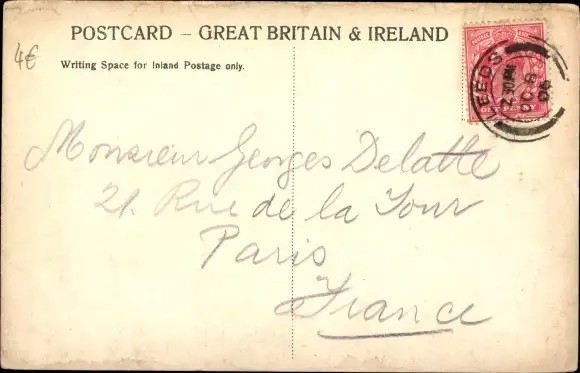 4€
POSTCARD – GREAT BRITAIN & IRELAND
Writing Space for Inland Postage only.
LEEDS
2.30 PM
OC 8
06
ONE PENNY
Monsieur Georges Delatte
21. Rue de la Tour
Paris
France